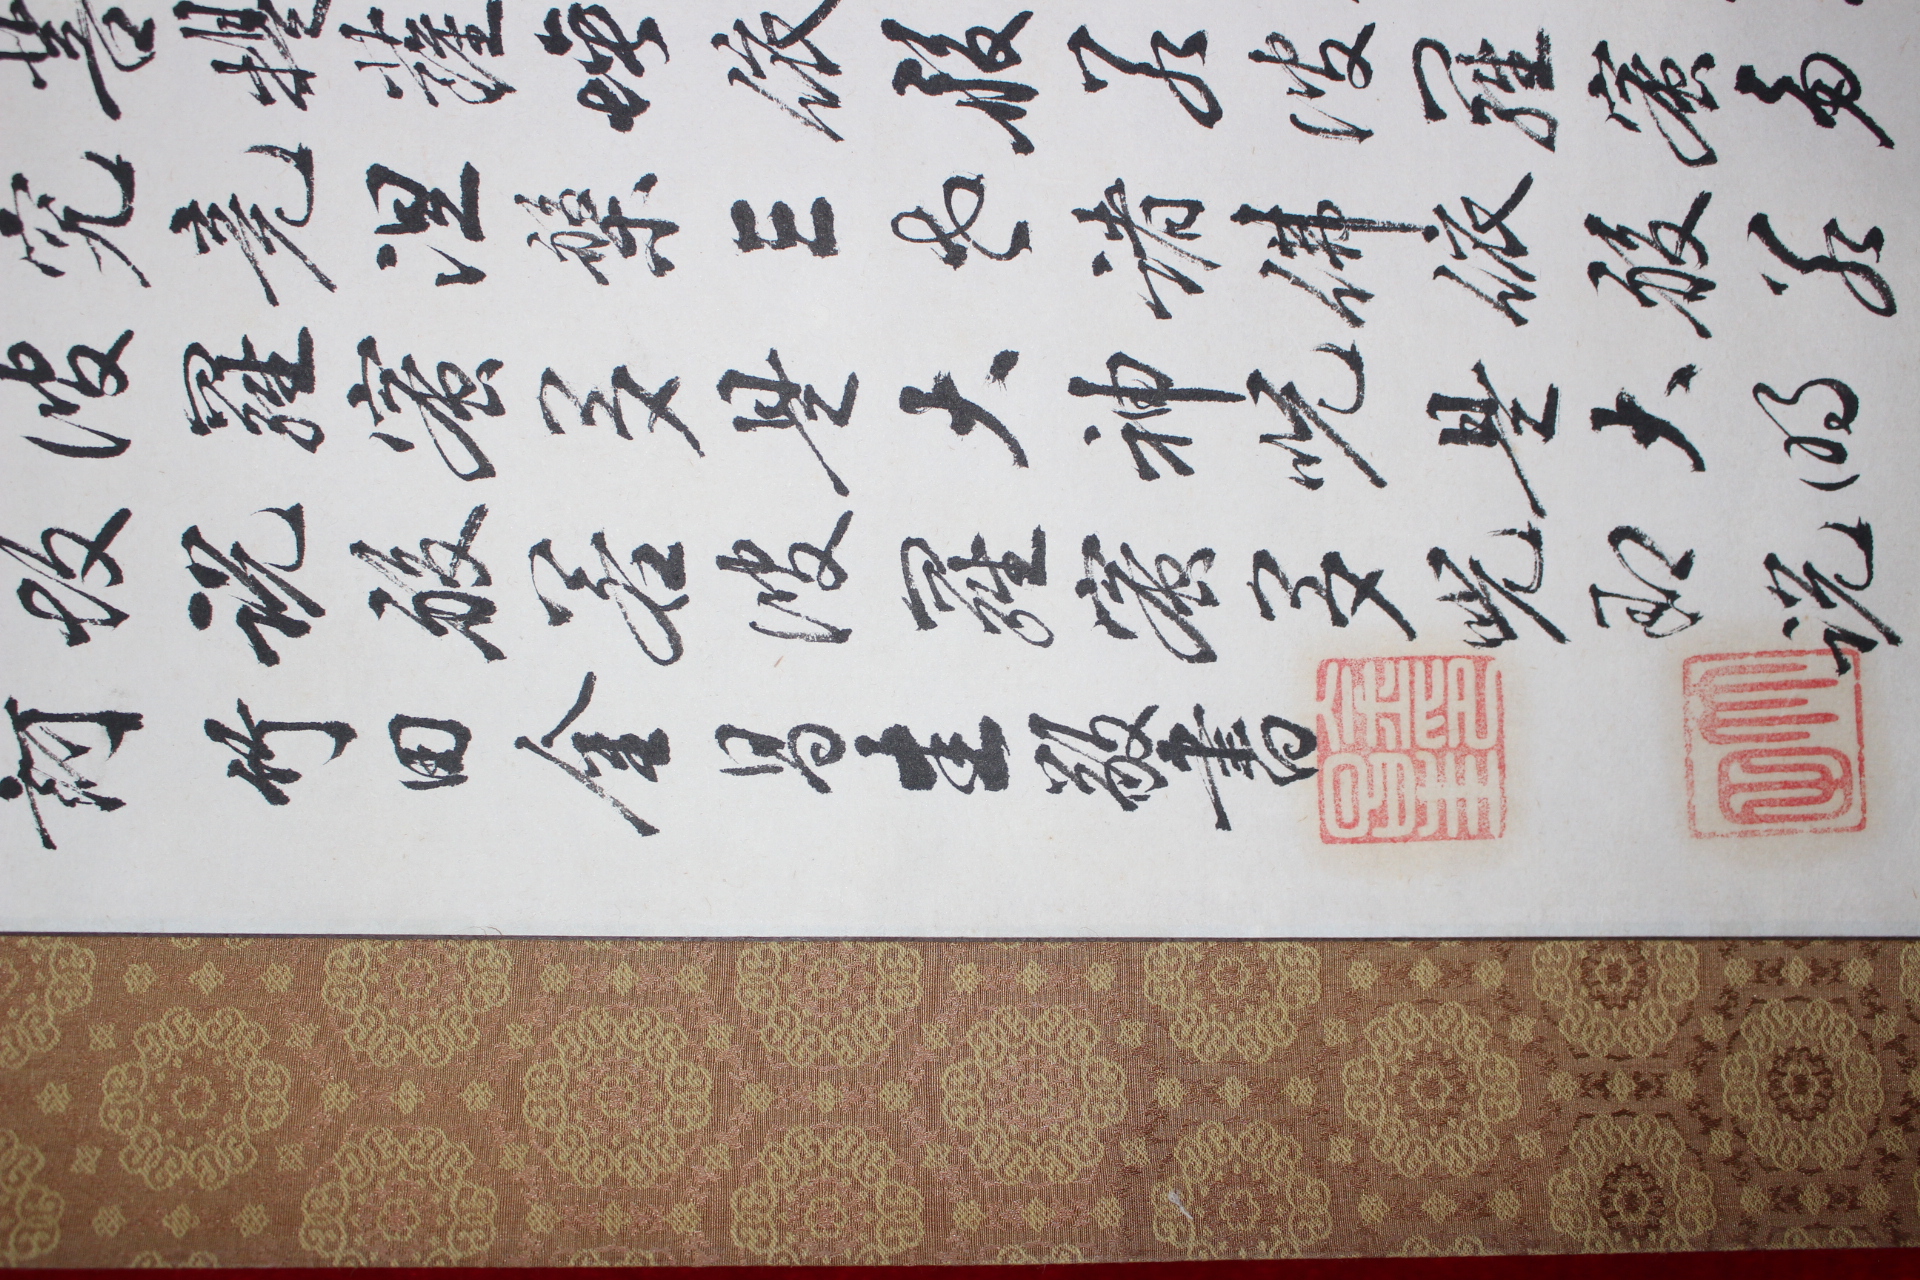 菩提薩埵依般若波羅蜜多
究竟涅槃三世諸佛依般若
波羅蜜多是大神呪是大明
故說般若波羅蜜多呪即說
訶 竹田金昌圭敬書
金印
昌圭